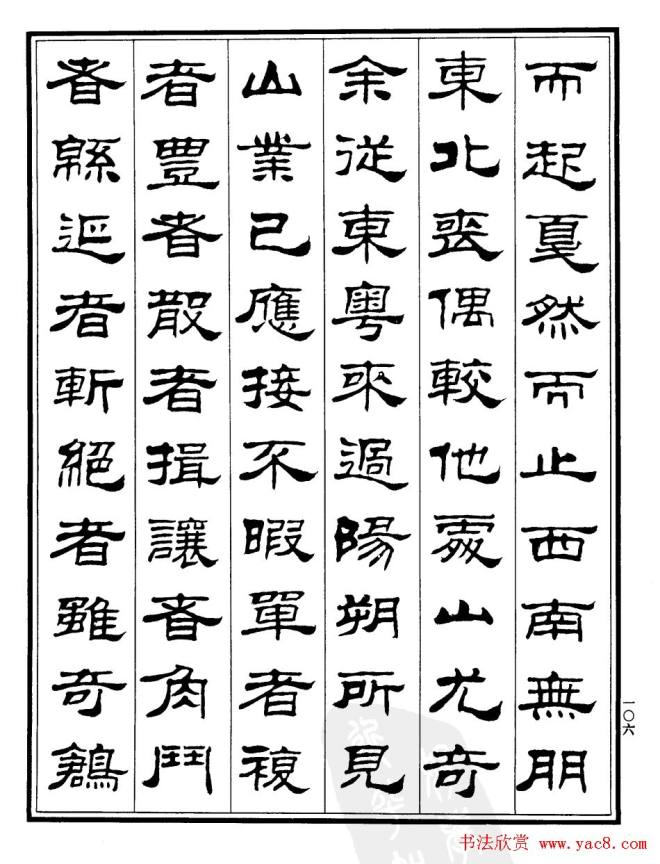 而起戛然而止西南無朋
東北喪偶較他處山尤奇
余從東粵來過陽朔所見
山業已應接不暇單者複
者豐者殺者揖讓者角鬥
者緜延者斬絕者雖奇鶬
一〇六
书法欣赏 www.yac8.com